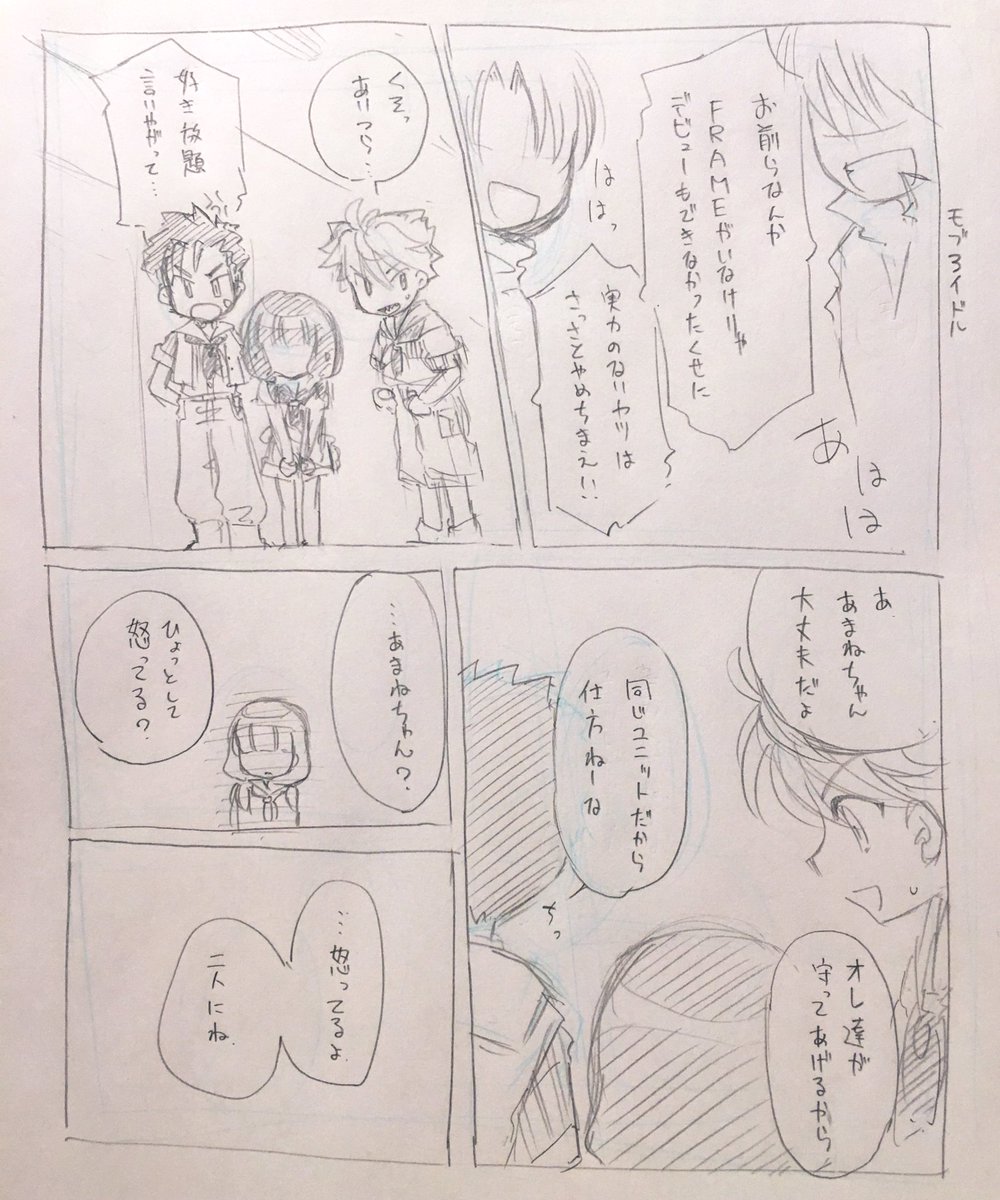 モブアイドル
お前らなんか
FRAMEがいなけりゃ
デビューもできなかったくせに
ははっ
実力のないヤツは
さっさとやめちまえい!
あはは
くそっ
あいつら…
好き放題
言いやがって…
あ、
あまねちゃん
大丈夫だよ
同じユニットだから
仕方ねーな
ちっ
オレ達が
守ってあげるから
…あまねちゃん?
ひょっとして
怒ってる?
…怒ってるよ
二人にね